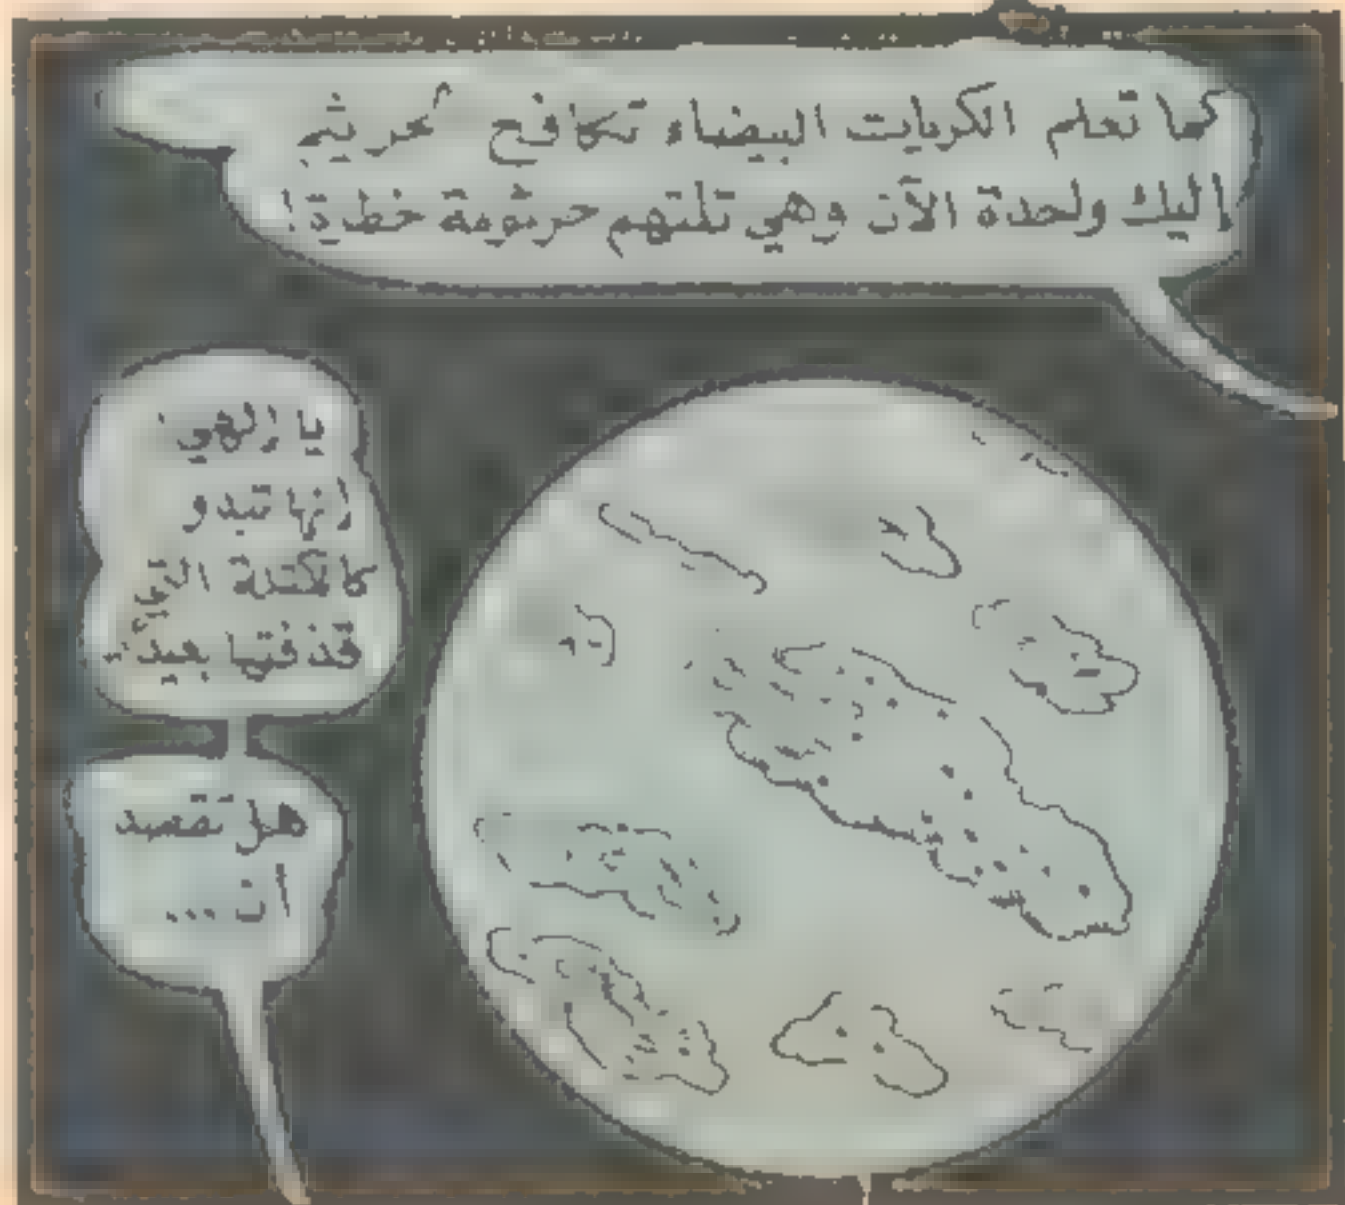 كما تعلم الكريات البيضاء تكافح الجراثيم
اليك واحدة الآن وهي تلتهم جرثومة خطرة!
يا إلهي
إنها تبدو
كالكتلة التي
قذفتها بعيدًا
هل تقصد
أن ...